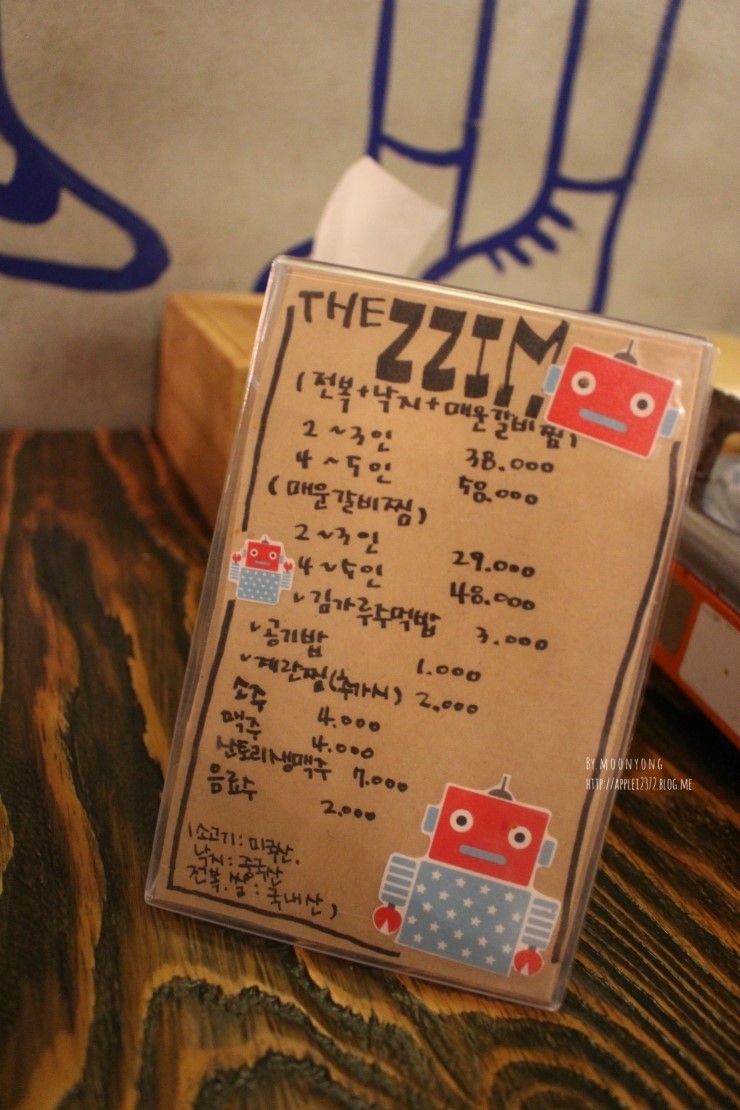 THE ZZIM
(전복+낙지+매운갈비찜)
2~3인 38.000
4~5인 58.000
(매운갈비찜)
2~3인 29.000
4~5인 48.000
✓김가루주먹밥 3.000
✓공기밥 1.000
✓계란찜(추가시) 2,000
소주 4.000
맥주 4.000
산토리생맥주 7.000
음료수 2.000
(소고기: 미국산.
낙지: 중국산
전복.쌀: 국내산)
BY MOONYONG
HTTP://APPLE12372.BLOG.ME